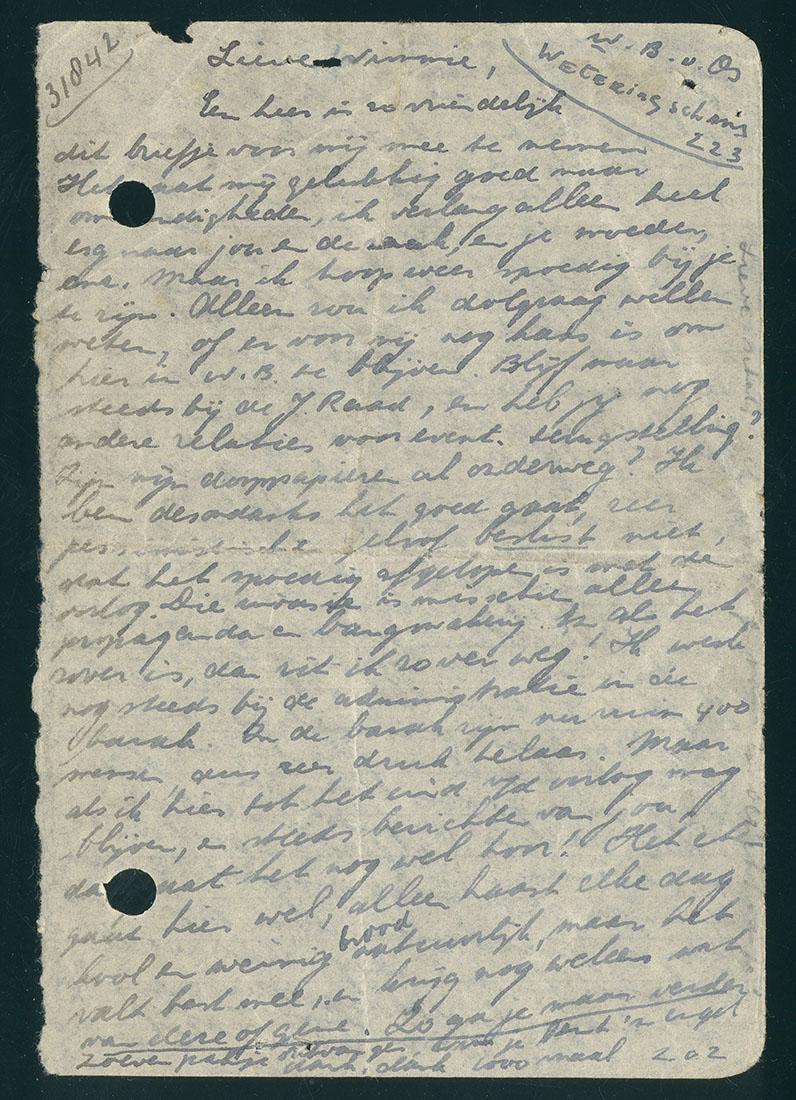 31842
W.B.v.Os
Weteringschans
223
Lieve Wimmie,
Een heer is zo vriendelijk
dit briefje voor mij mee te nemen
Het gaat mij gelukkig goed naar
omstandigheden, ik verlang alleen heel
erg naar jou en de zaak, en je moeder,
enz. Maar ik hoop weer spoedig bij je
te zijn. Alleen zou ik dolgraag willen
weten, of er voor mij nog kans is om
hier in W.B. te blijven. Blijf maar
steeds bij de J. Raad, en heb jij nog
andere relaties voor event. terugstelling?
Zijn mijn doopspapieren al onderweg? Ik
ben desondanks het goed gaat, zeer
pessimistisch geloof beslist niet,
dat het spoedig afgelopen is met de
oorlog. Die invasie is misschien alleen
propaganda en bangmakerij. En als het
zover is, dan zit ik zover weg! Ik werk
nog steeds bij de administratie in de
barak. In de barak zijn nu ruim 400
mensen, dus zeer druk helaas. Maar
als ik hier tot het eind v/d oorlog mag
blijven, en steeds berichte van jou
dan gaat het nog wel hoor! Het eten
gaat hier wel, alleen haast elke dag
kool en weinig brood natuurlijk, maar het
valt best mee, en krijg nog weleens wat
van deze of gene. Zo ga je maar verder
Zoeven pakje ontvangen je bent 'n engel
dank, dank 1000 maal z.o.z